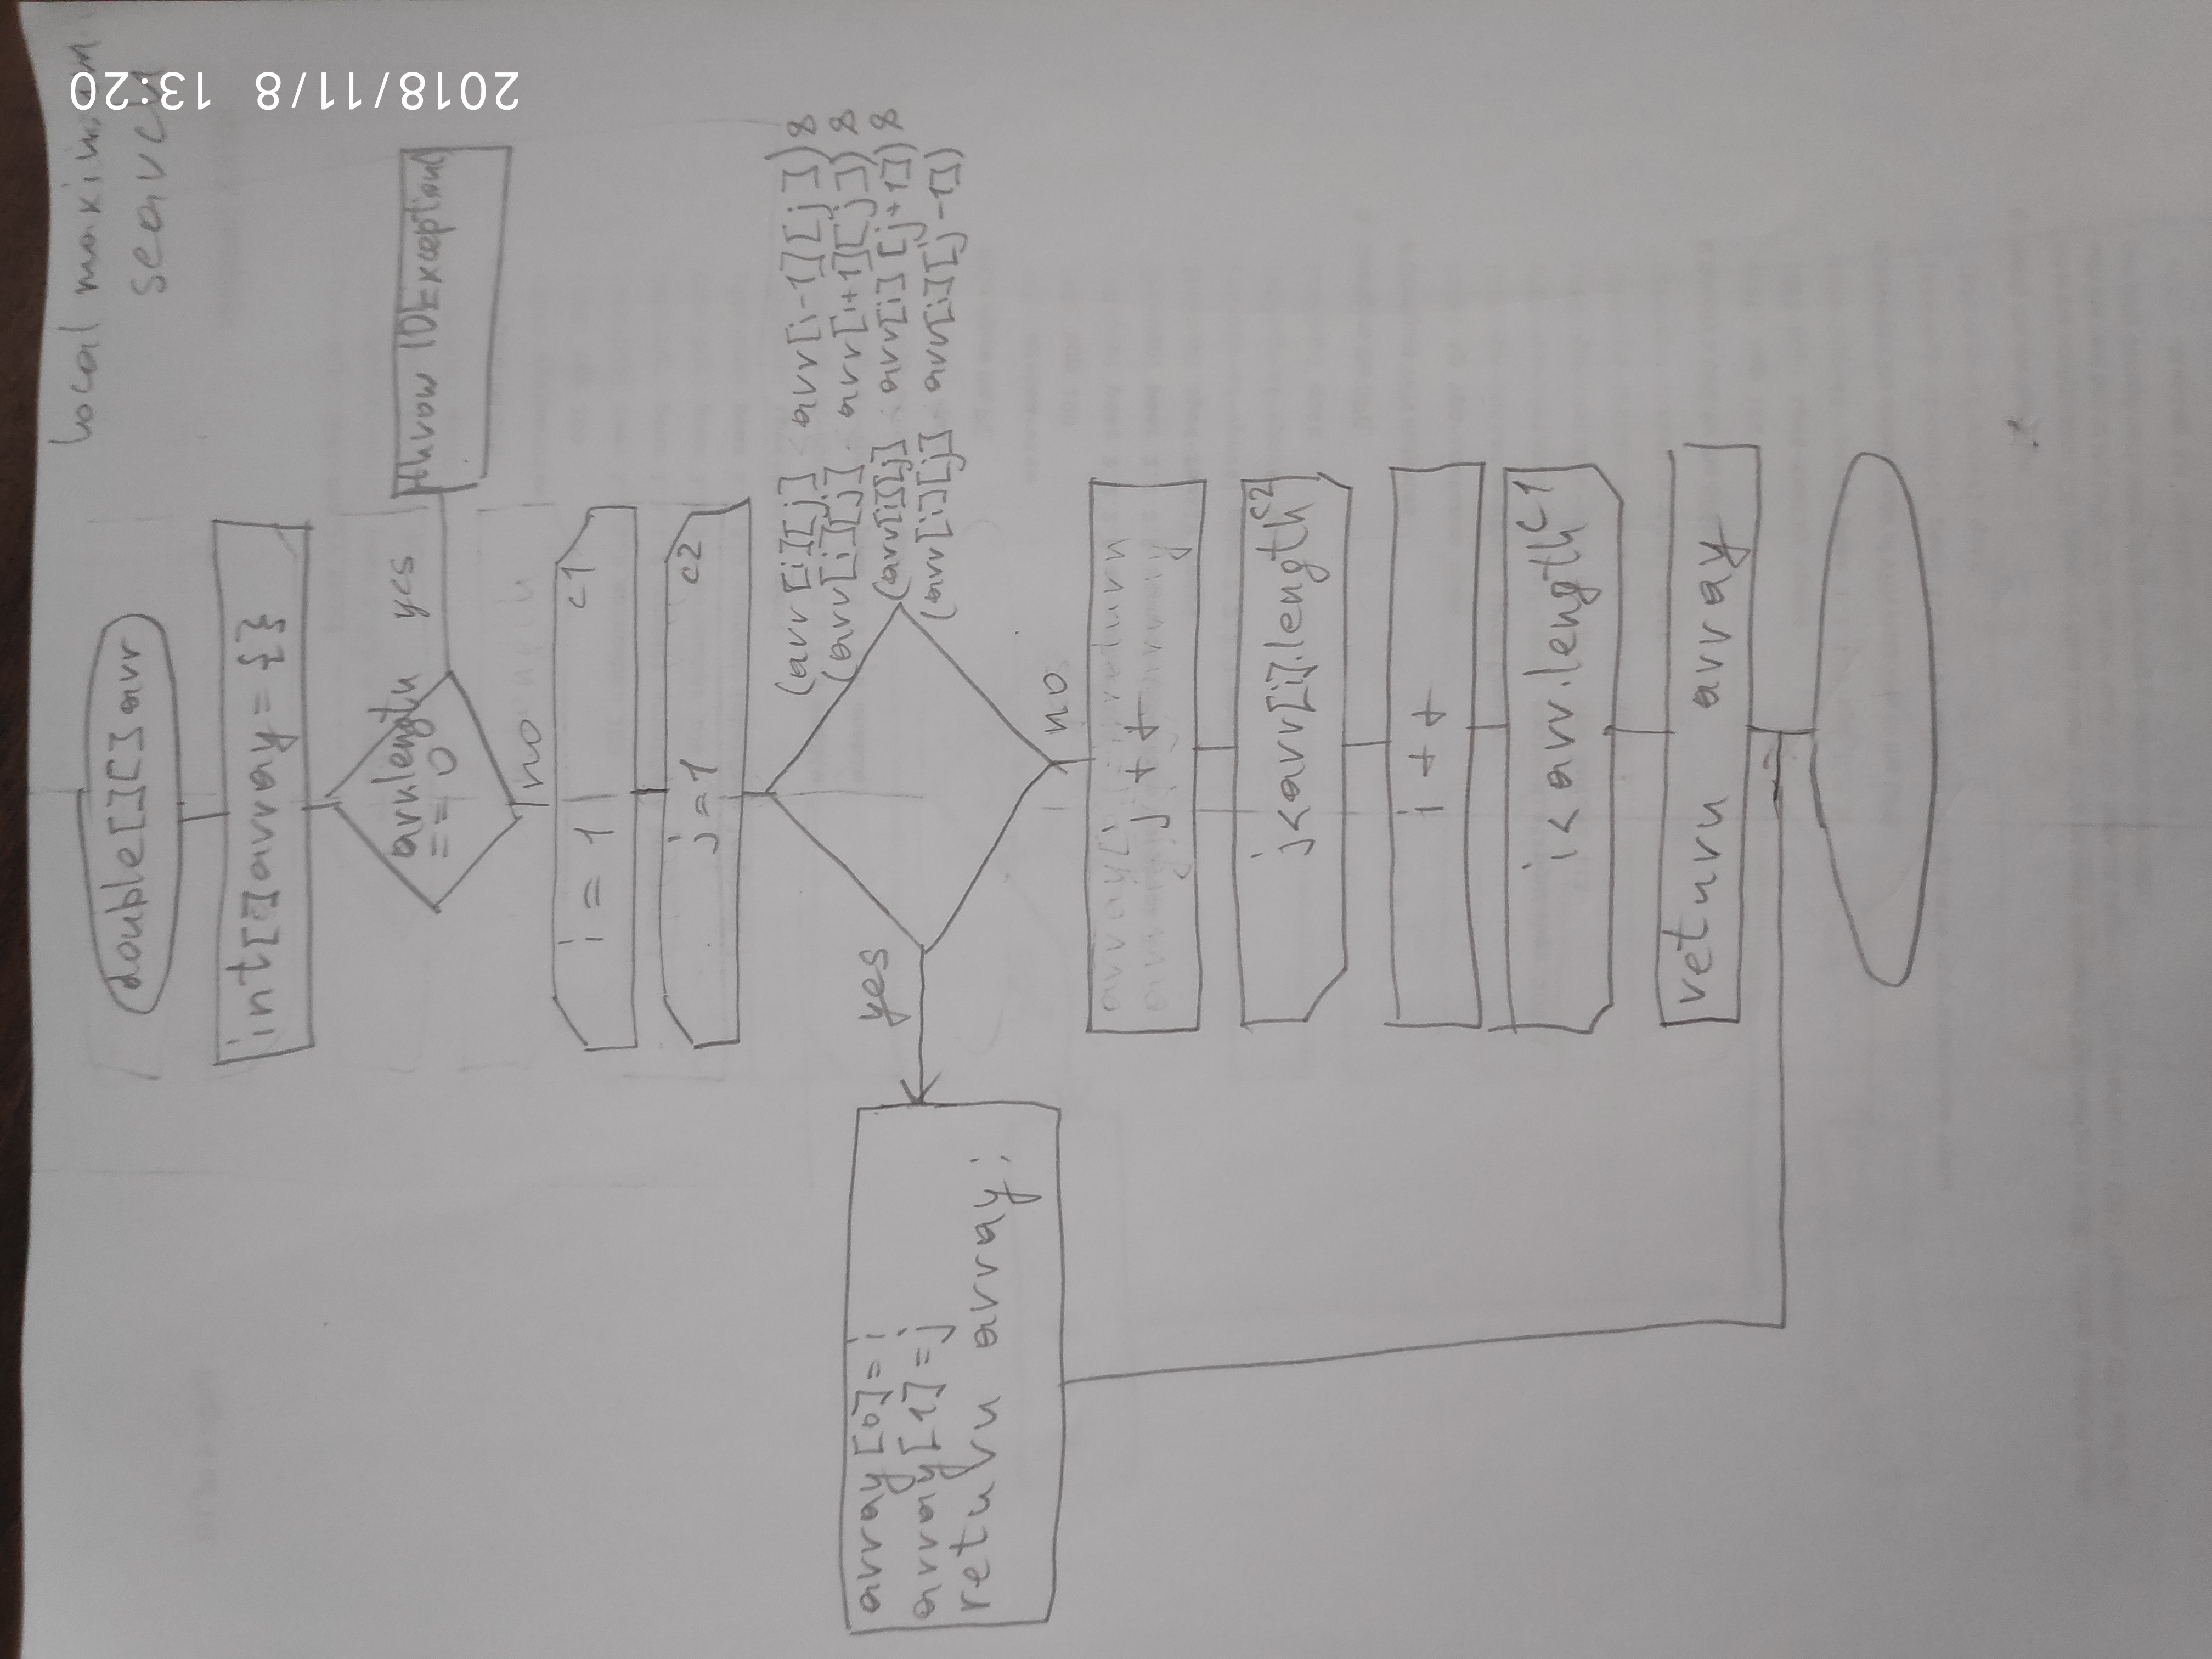 local maximum
search
double[][]arr
int[]array = {}
arr.length
== 0
yes
throw IDException
no
i = 1
c1
j = 1
c2
(arr[i][j] < arr[i-1][j]) &
(arr[i][j] < arr[i+1][j]) &
(arr[i][j] < arr[i][j+1]) &
(arr[i][j] < arr[i][j-1])
yes
array[0] = i
array[1] = j
return array;
no
j++
j<arr[i].length
c2
i++
i<arr.length
c1
return array
2018/11/8 13:20